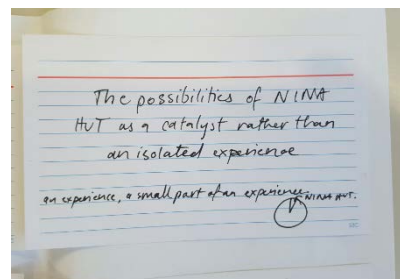 The possibilities of NINA
HUT as a catalyst rather than
an isolated experience
an experience, a small part of an experience
NINA HUT.